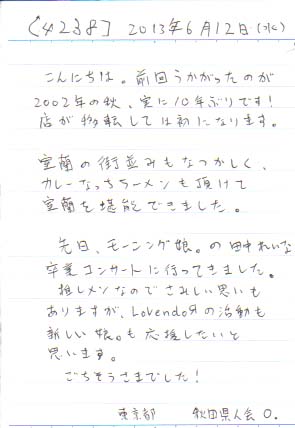 [4238] 2013年6月12日(水)
こんにちは。前回うかがったのが
2002年の秋、実に10年ぶりです!
店が移転しては初になります。
室蘭の街並みもなつかしく、
カレーなっちラーメンも頂けて
室蘭を堪能できました。
先日、モーニング娘。の田中れいな
卒業コンサートに行ってきました。
推しメンなのでさみしい思いも
ありますが、LoVendoЯの活動も
新しい娘。も応援したいと
思います。
ごちそうさまでした!
東京都 秋田県人会 O.